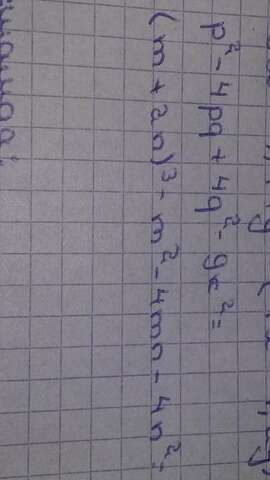 p² - 4pq + 4q² - 9x² =
(m + 2n)³ - m² - 4mn - 4n² =